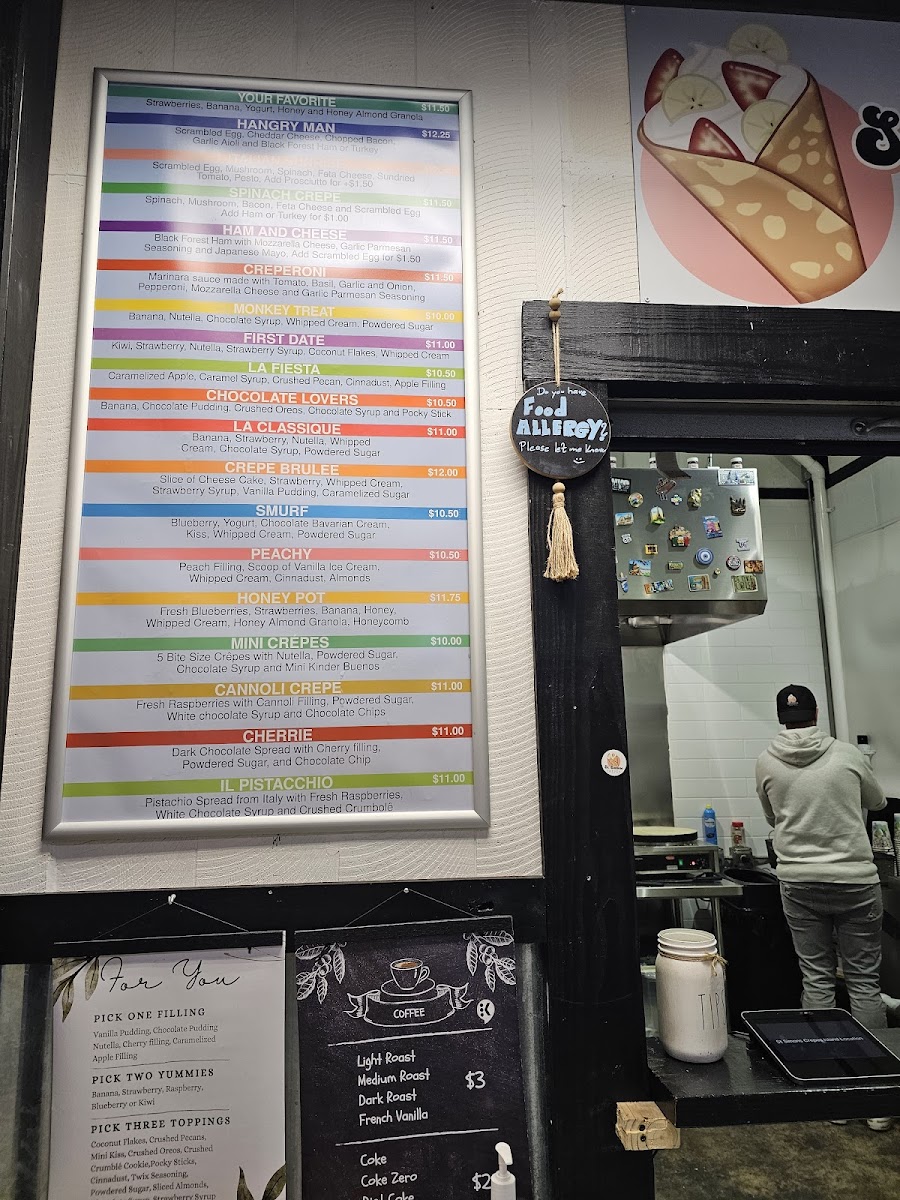 YOUR FAVORITE $11.50
Strawberries, Banana, Yogurt, Honey and Honey Almond Granola
HANGRY MAN $12.25
Scrambled Egg, Cheddar Cheese, Chopped Bacon,
Garlic Aioli and Black Forest Ham or Turkey
Scrambled Egg, Mushroom, Spinach, Feta Cheese, Sundried
Tomato, Pesto, Add Prosciutto for +$1.50
SPINACH CREPE $11.50
Spinach, Mushroom, Bacon, Feta Cheese and Scrambled Egg
Add Ham or Turkey for $1.00
HAM AND CHEESE $11.50
Black Forest Ham with Mozzarella Cheese, Garlic Parmesan
Seasoning and Japanese Mayo, Add Scrambled Egg for $1.50
CREPERONI $11.50
Marinara sauce made with Tomato, Basil, Garlic and Onion,
Pepperoni, Mozzarella Cheese and Garlic Parmesan Seasoning
MONKEY TREAT $10.00
Banana, Nutella, Chocolate Syrup, Whipped Cream, Powdered Sugar
FIRST DATE $11.00
Kiwi, Strawberry, Nutella, Strawberry Syrup, Coconut Flakes, Whipped Cream
LA FIESTA $10.50
Caramelized Apple, Caramel Syrup, Crushed Pecan, Cinnadust, Apple Filling
CHOCOLATE LOVERS $10.50
Banana, Chocolate Pudding, Crushed Oreos, Chocolate Syrup and Pocky Stick
LA CLASSIQUE $11.00
Banana, Strawberry, Nutella, Whipped
Cream, Chocolate Syrup, Powdered Sugar
CREPE BRULEE $12.00
Slice of Cheese Cake, Strawberry, Whipped Cream,
Strawberry Syrup, Vanilla Pudding, Caramelized Sugar
SMURF $10.50
Blueberry, Yogurt, Chocolate Bavarian Cream,
Kiss, Whipped Cream, Powdered Sugar
PEACHY $10.50
Peach Filling, Scoop of Vanilla Ice Cream,
Whipped Cream, Cinnadust, Almonds
HONEY POT $11.75
Fresh Blueberries, Strawberries, Banana, Honey,
Whipped Cream, Honey Almond Granola, Honeycomb
MINI CRÊPES $10.00
5 Bite Size Crêpes with Nutella, Powdered Sugar,
Chocolate Syrup and Mini Kinder Buenos
CANNOLI CREPE $11.00
Fresh Raspberries with Cannoli Filling, Powdered Sugar,
White chocolate Syrup and Chocolate Chips
CHERRIE $11.00
Dark Chocolate Spread with Cherry filling,
Powdered Sugar, and Chocolate Chip
IL PISTACCHIO $11.00
Pistachio Spread from Italy with Fresh Raspberries,
White Chocolate Syrup and Crushed Crumbolé
Do you have
Food
ALLERGY?
Please let me know
For You
PICK ONE FILLING
Vanilla Pudding, Chocolate Pudding
Nutella, Cherry filling, Caramelized
Apple Filling
PICK TWO YUMMIES
Banana, Strawberry, Raspberry,
Blueberry or Kiwi
PICK THREE TOPPINGS
Coconut Flakes, Crushed Pecans,
Mini Kiss, Crushed Oreos, Crushed
Crumblé Cookie,Pocky Sticks,
Cinnadust, Twix Seasoning,
Powdered Sugar, Sliced Almonds,
Strawberry Syrup
COFFEE
Light Roast
Medium Roast $3
Dark Roast
French Vanilla
Coke
Coke Zero $2
Diet Coke
TIPS
St Simons Crepes Island Location